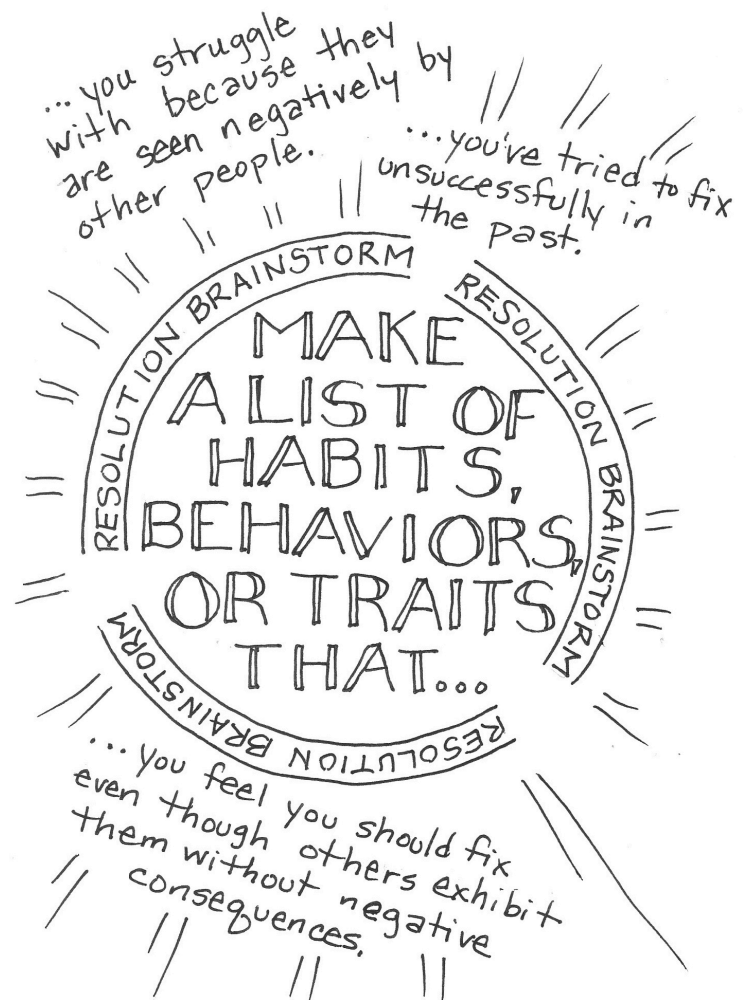 ...you struggle
with because they
are seen negatively by
other people.
...you've tried to fix
unsuccessfully in
the past.
RESOLUTION BRAINSTORM
RESOLUTION BRAINSTORM
MAKE
A LIST OF
HABITS,
BEHAVIORS,
OR TRAITS
THAT...
RESOLUTION BRAINSTORM
...you feel you should fix
even though others exhibit
them without negative
consequences.